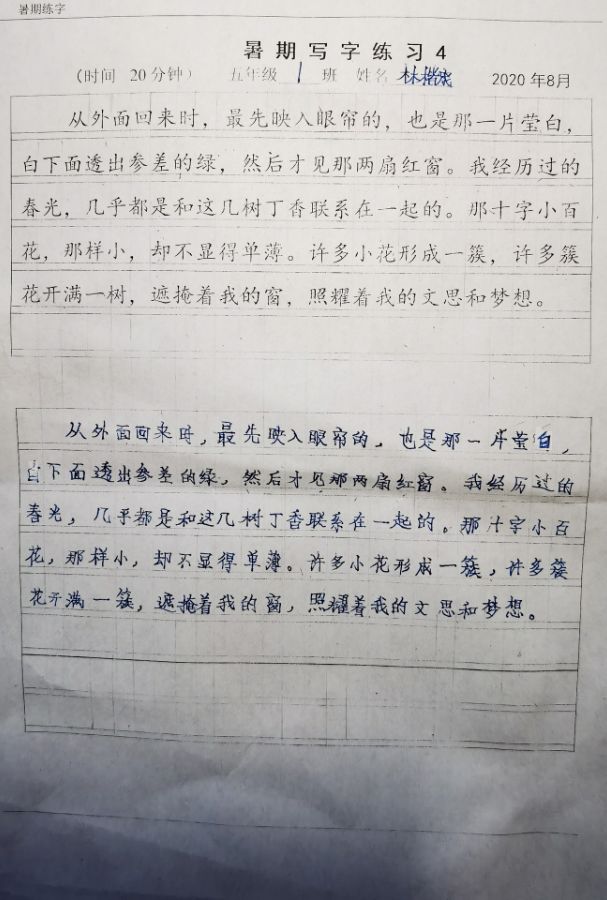 暑期练字
暑期写字练习4
（时间 20分钟） 五年级 1 班 姓名 林 2020年8月
从外面回来时，最先映入眼帘的，也是那一片莹白，
白下面透出参差的绿，然后才见那两扇红窗。我经历过的
春光，几乎都是和这几树丁香联系在一起的。那十字小百
花，那样小，却不显得单薄。许多小花形成一簇，许多簇
花开满一树，遮掩着我的窗，照耀着我的文思和梦想。
从外面回来时，最先映入眼帘的，也是那一片莹白，
白下面透出参差的绿，然后才见那两扇红窗。我经历过的
春光，几乎都是和这几树丁香联系在一起的。那十字小百
花，那样小，却不显得单薄。许多小花形成一簇，许多簇
花开满一簇，遮掩着我的窗，照耀着我的文思和梦想。